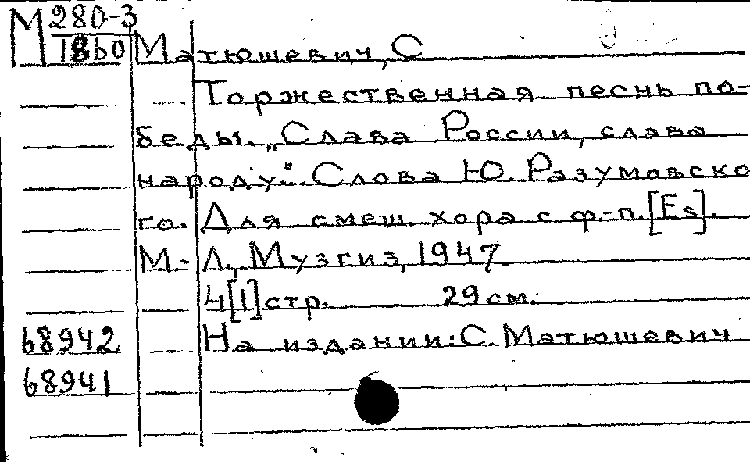 М 280-3
1860 Матюшевич, С
Торжественная песнь по-
беды. „Слава России, слава
народу". Слова Ю. Разумовско
го. Для смеш. хора с ф-п. [Es].
М.-Л., Музгиз, 1947
4[1] стр. 29 см.
68942 На издании: С. Матюшевич
68941